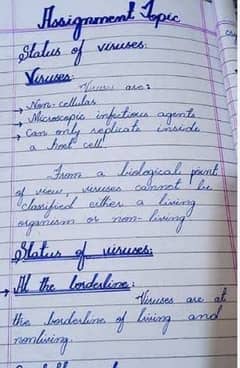 Assignment Topic
Status of viruses:
Viruses:
Viruses are:
→ Non-cellular
→ Microscopic infectious agents
→ Can only replicate inside
a host cell
From a biological point
of view, viruses cannot be
classified either a living
organism or non-living
Status of viruses:
→ At the borderline:
Viruses are at
the borderline of living and
nonliving.